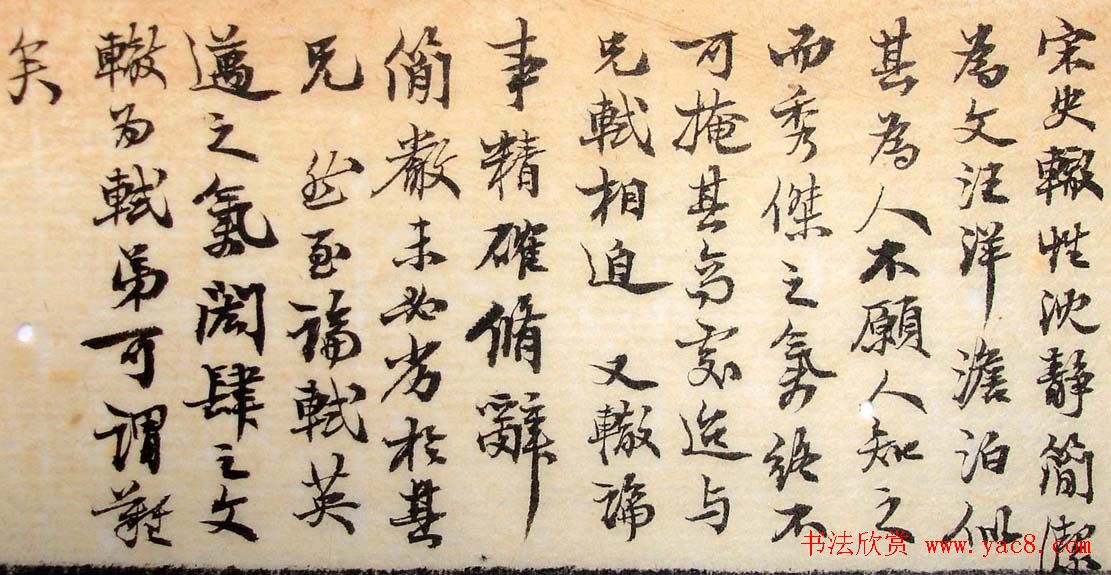 宋史辙性沈静簡潔
為文汪洋澹泊似
其為人不願人知之
而秀傑之氣終不
可掩其高處迨与
兄軾相迫又轍論
事精確脩辭
簡嚴未必劣於其
兄 然至論軾英
邁之氣閎肆之文
轍為軾弟可謂難
矣
书法欣赏 www.yac8.com